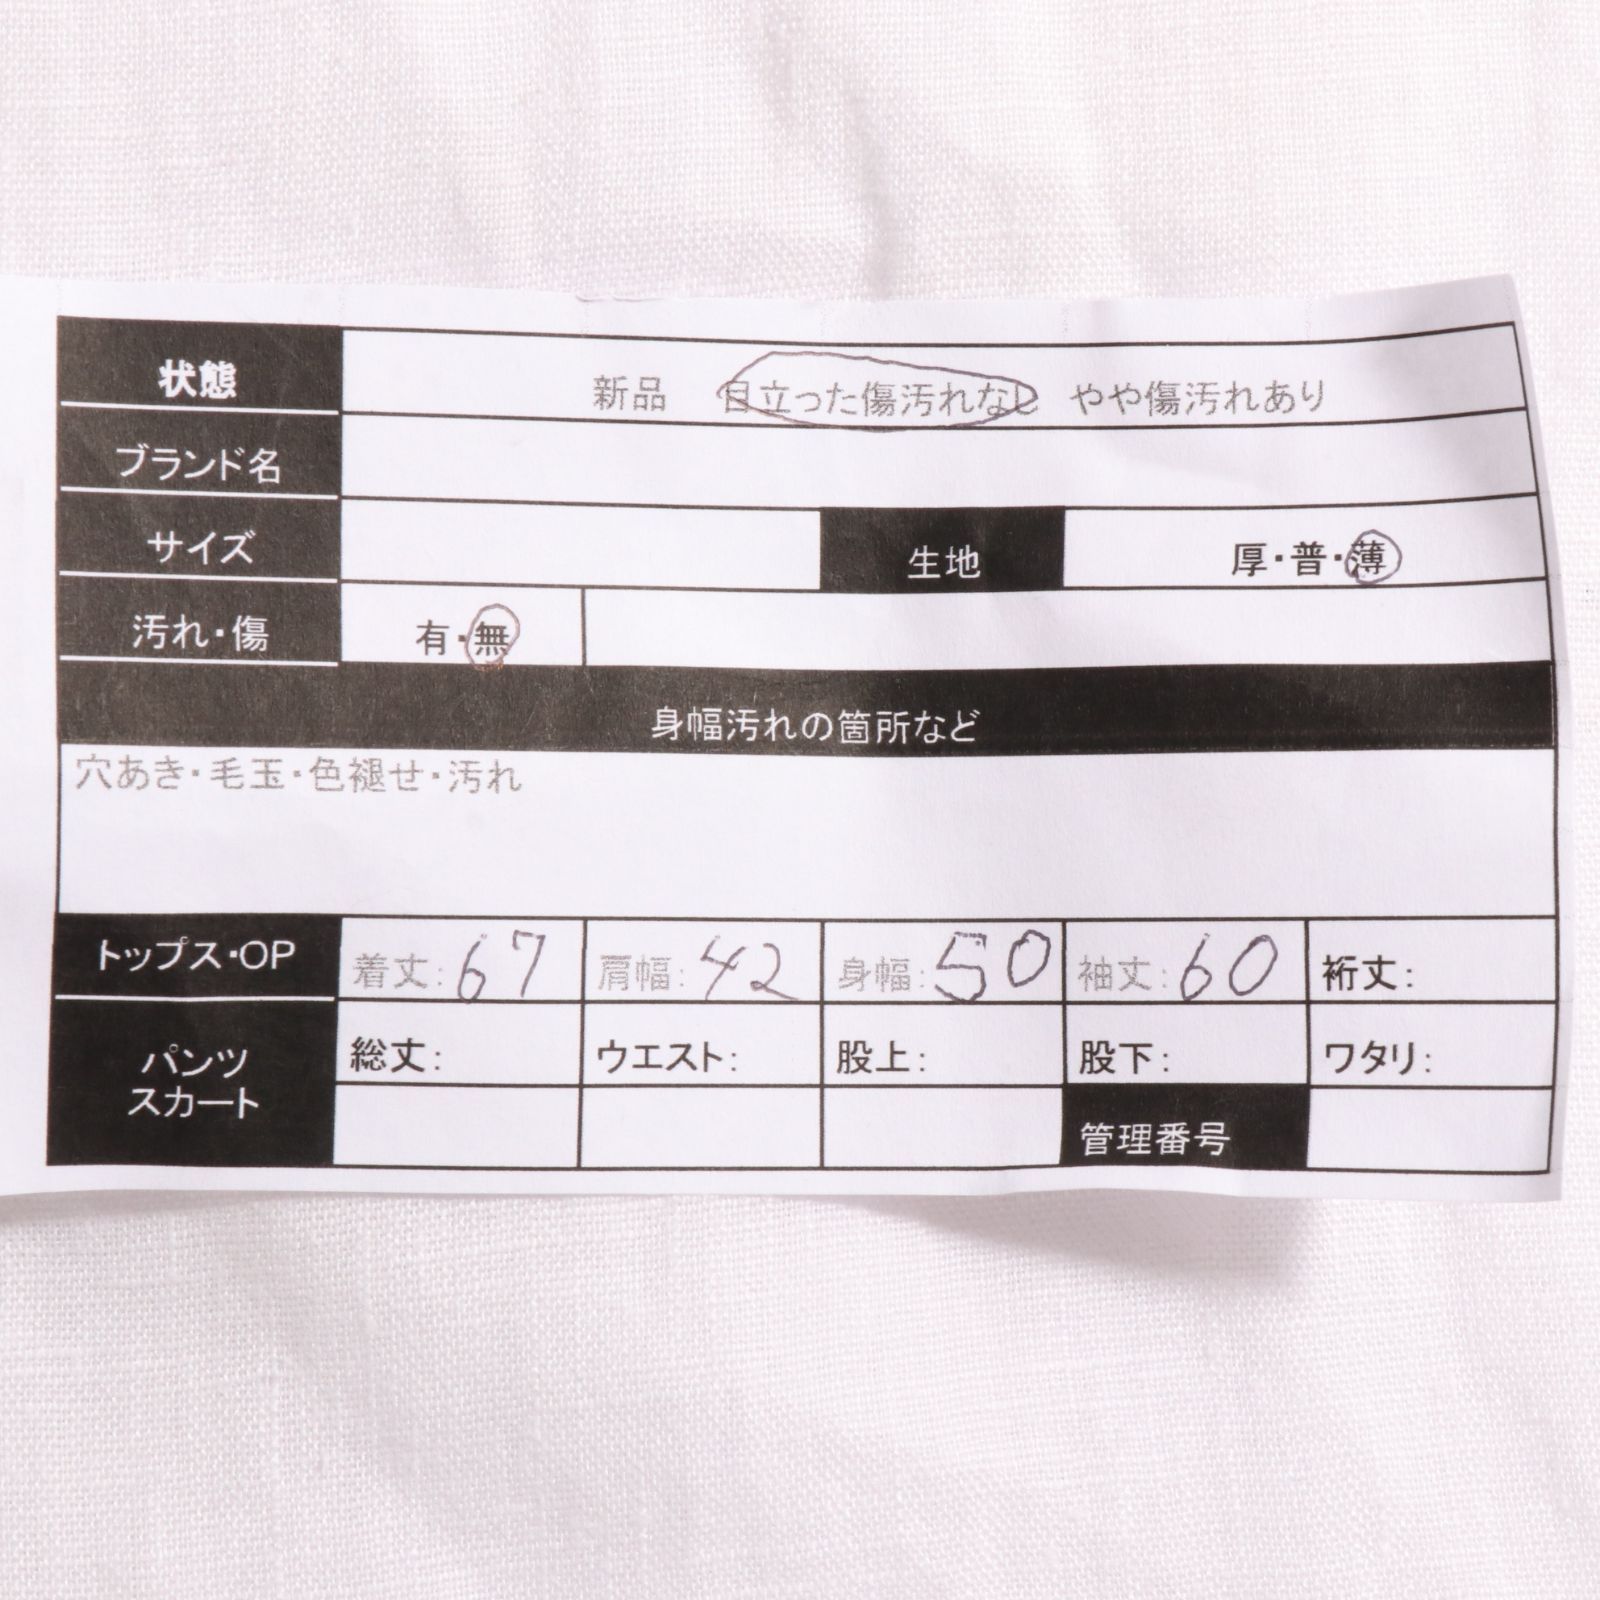 状態 新品 目立った傷汚れなし やや傷汚れあり
ブランド名
サイズ 生地 厚・普・薄
汚れ・傷 有・無
身幅汚れの箇所など
穴あき・毛玉・色褪せ・汚れ
トップス・OP 着丈: 67 肩幅: 42 身幅: 50 袖丈: 60 裄丈:
パンツ 総丈: ウエスト: 股上: 股下: ワタリ:
スカート 管理番号